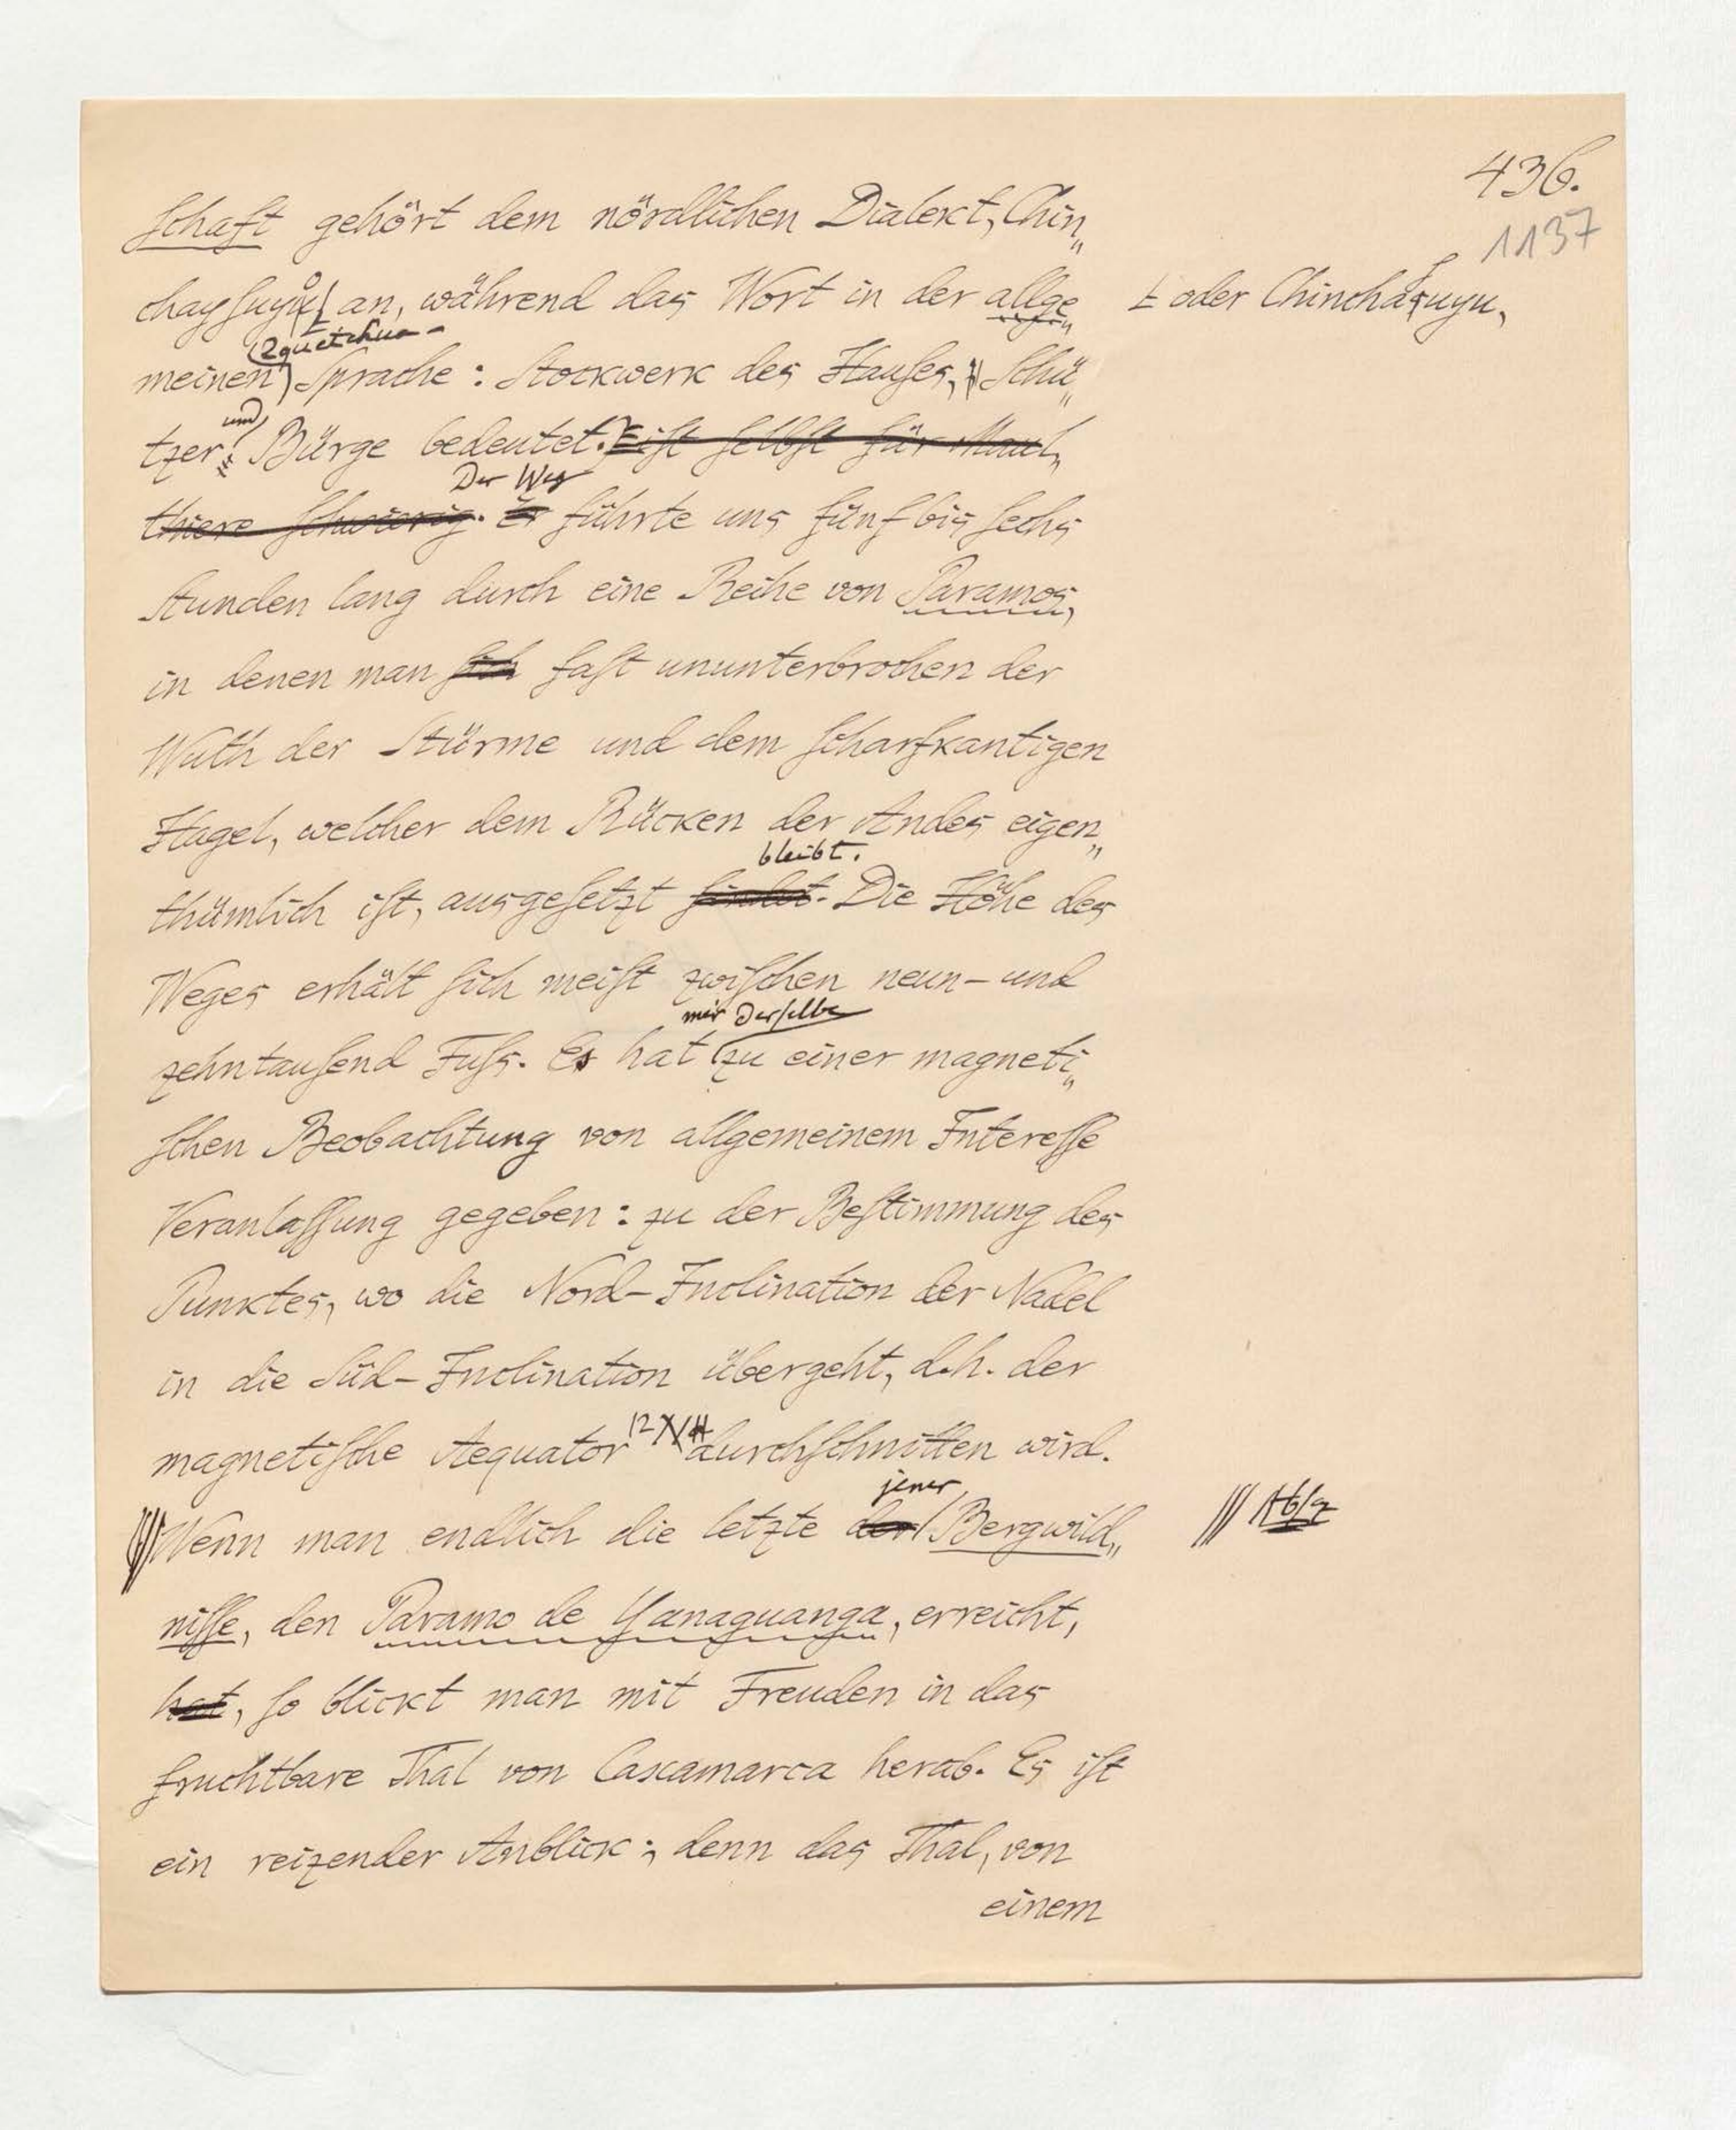 436.
1137
schaft gehört dem nördlichen Dialect, Chin„
chaysuyu an, während das Wort in der allge„
oder Chinchasuyu,
Quetchua-
meinen Sprache: Stockwerk des Hauses, Schü„
und
tzer, Bürge bedeutet. ist selbst für Maul„
Der Weg
thiere schwierig. Er führte uns fünf bis sechs
Stunden lang durch eine Reihe von Paramos,
in denen man sich fast ununterbrochen der
Wuth der Stürme und dem scharfkantigen
Hagel, welcher dem Rücken der Andes eigen„
bleibt.
thümlich ist, ausgesetzt findet. Die Höhe des
Weges erhält sich meist zwischen neun- und
mir derselbe
zehntausend Fuss. Es hat zu einer magneti„
schen Beobachtung von allgemeinem Interesse
Veranlassung gegeben: zu der Bestimmung des
Punktes, wo die Nord-Inclination der Nadel
in die Süd-Inclination übergeht, d.h. der
12
magnetische Aequator durchschnitten wird.
jener
Wenn man endlich die letzte der Bergwild„
Abs
nisse, den Paramo de Yanaguanga, erreicht,
hat, so blickt man mit Freuden in das
fruchtbare Thal von Caxamarca herab. Es ist
ein reizender Anblick; denn das Thal, von
einem